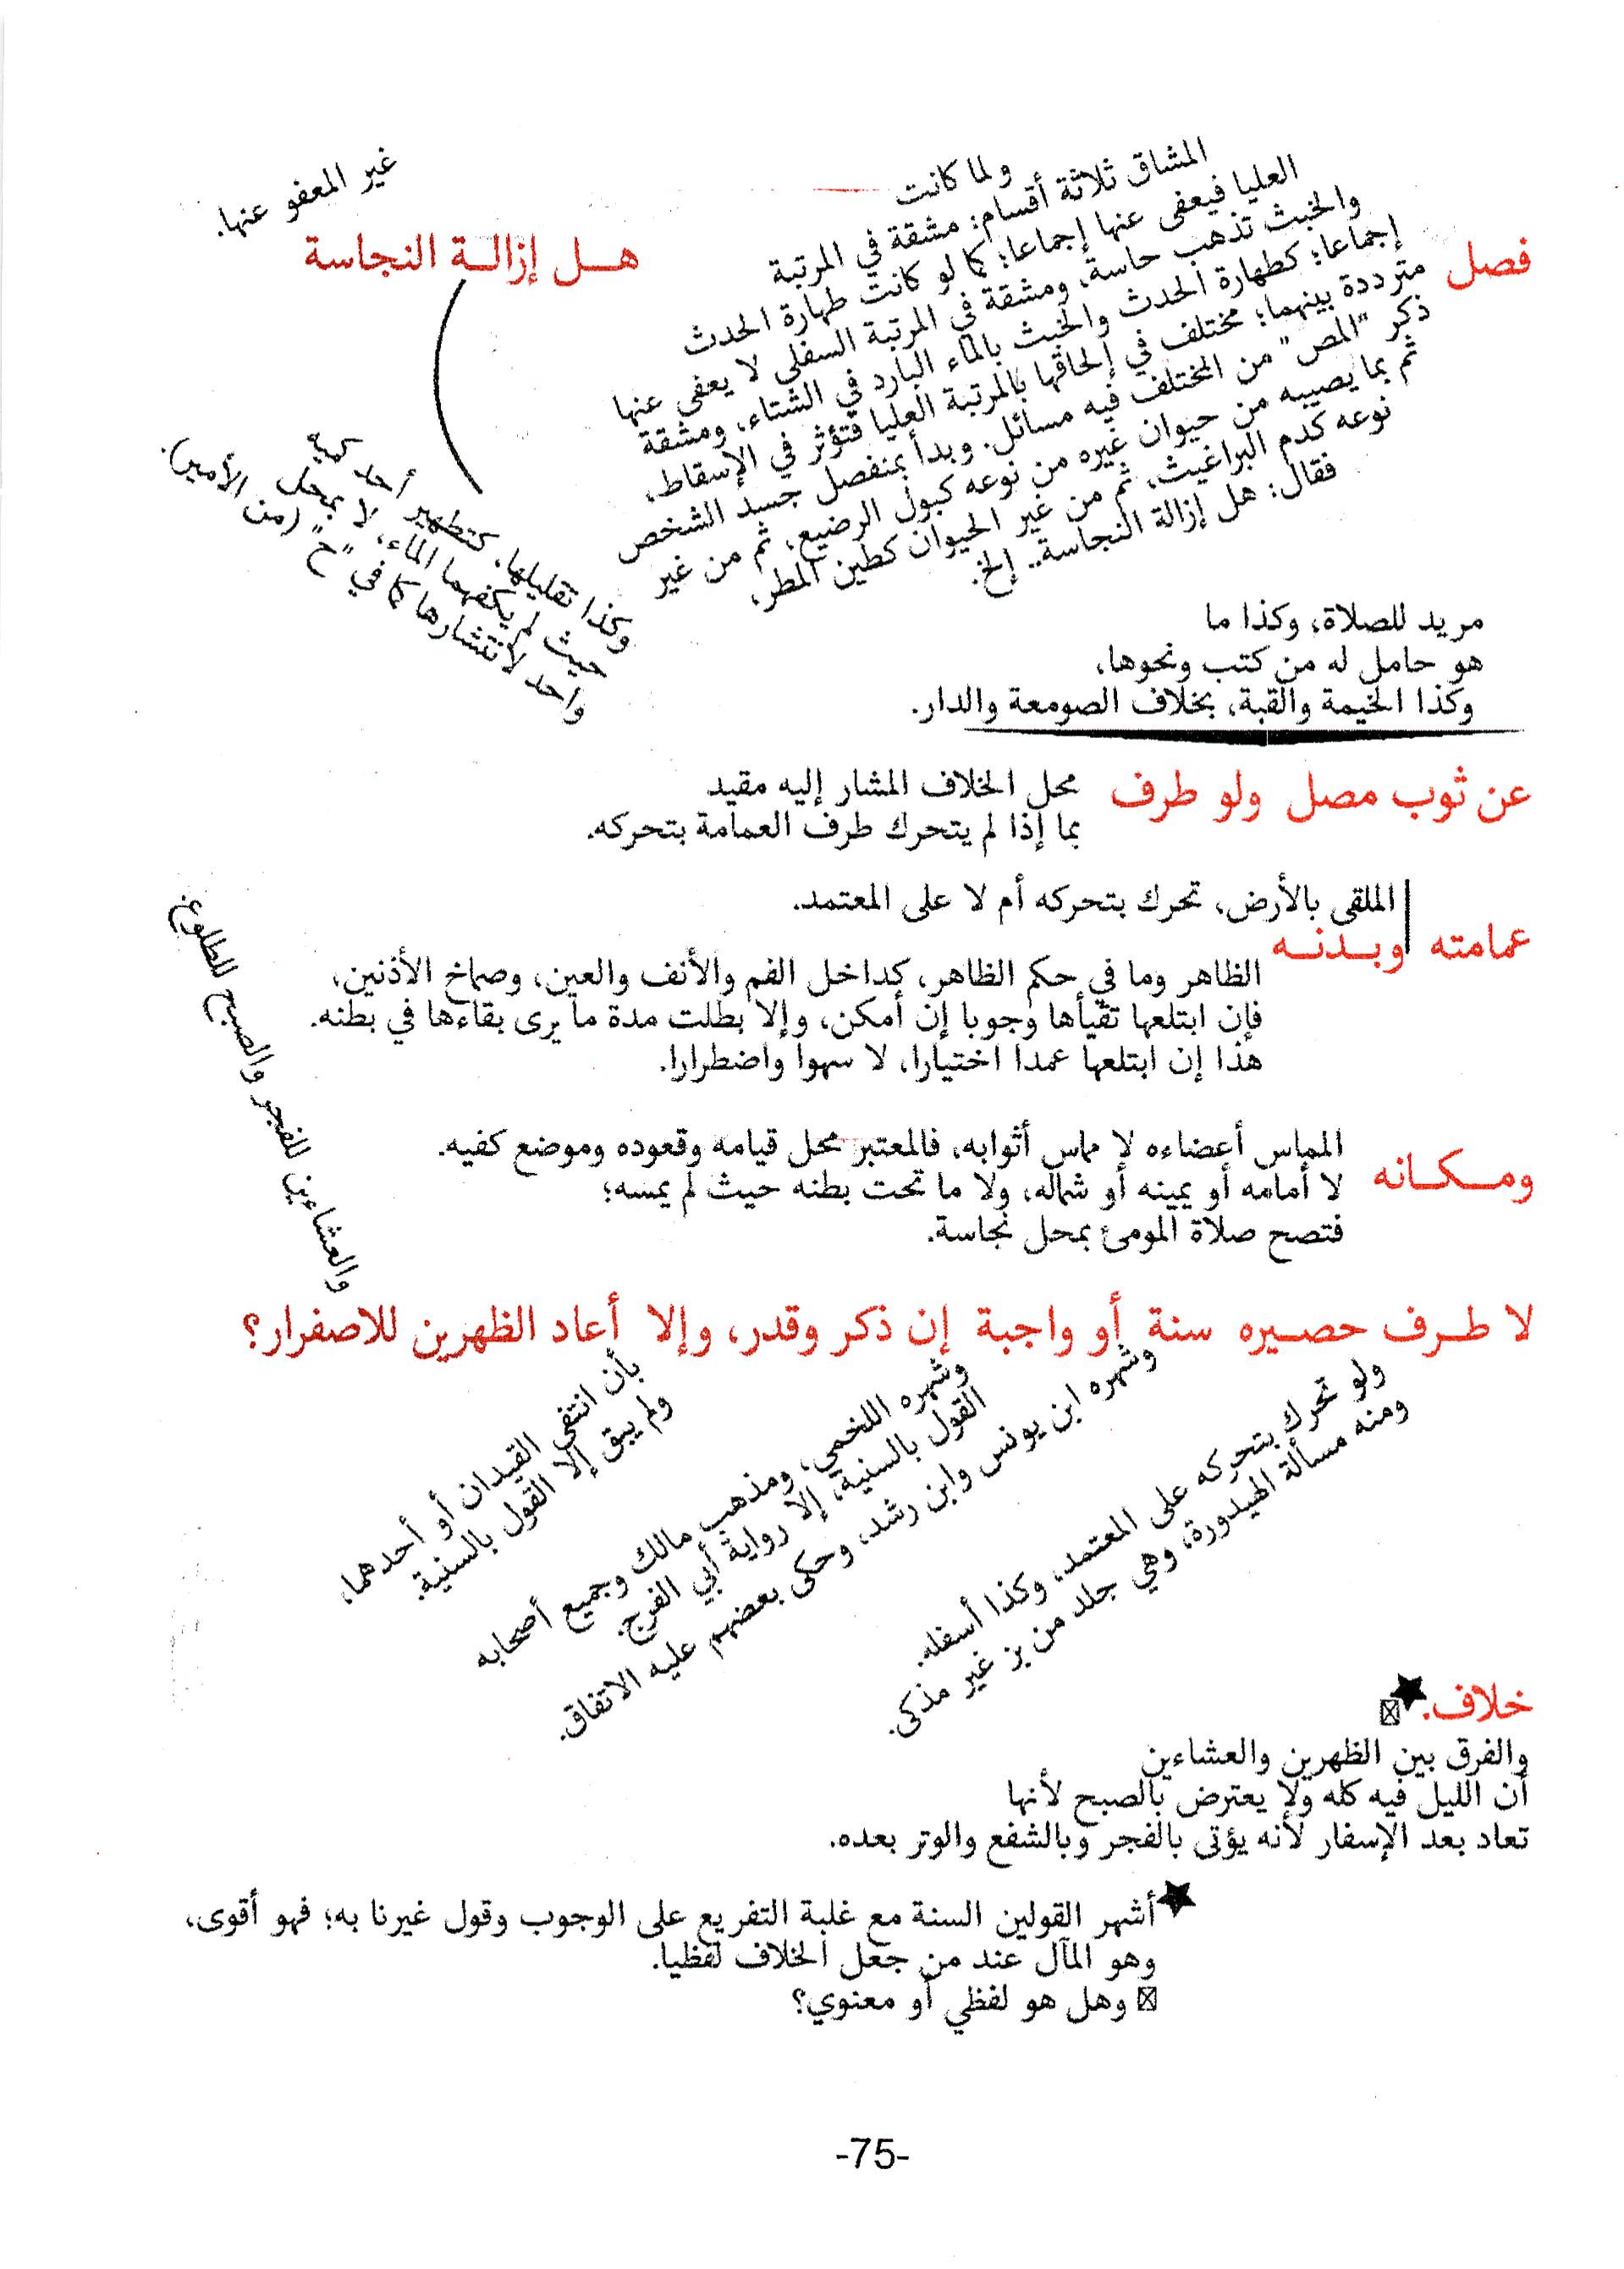 فصل
ولما كانت
المشاق ثلاثة أقسام: مشقة في المرتبة
العليا فيعفى عنها إجماعا؛ كما لو كانت طهارة الحدث
والخبث تذهب حاسة، ومشقة في المرتبة السفلى لا يعفى عنها
إجماعا؛ كطهارة الحدث والخبث بالماء البارد في الشتاء، ومشقة
مترددة بينهما؛ مختلف في إلحاقها بالمرتبة العليا فتؤثر في الإسقاط،
ذكر "المص" من المختلف فيه مسائل. وبدأ بمنفصل جسد الشخص
ثم بما يصيبه من حيوان غيره من نوعه كبول الرضيع، ثم من غير
نوعه كدم البراغيث، ثم من غير الحيوان كطين المطر،
فقال: هل إزالة النجاسة.. إلخ.
هـل إزالـة النجاسة
غير المعفو عنها.
وكذا تقليلها، كتطهير أحد كميه
حيث لم يكفهما الماء، لا بمحل
واحد لانتشارها كما في "ح" (من الأمير).
مريد للصلاة، وكذا ما
هو حامل له من كتب ونحوها،
وكذا الخيمة والقبة، بخلاف الصومعة والدار.
عن ثوب مصل ولو طرف
محل الخلاف المشار إليه مقيد
بما إذا لم يتحرك طرف العمامة بتحركه.
الملقى بالأرض، تحرك بتحركه أم لا على المعتمد.
عمامته وبـدنـه
الظاهر وما في حكم الظاهر، كداخل الفم والأنف والعين، وصماخ الأذنين،
فإن ابتلعها تقيأها وجوبا إن أمكن، وإلا بطلت مدة ما يرى بقاءها في بطنه.
هذا إن ابتلعها عمدا اختيارا، لا سهوا واضطرارا.
ومـكـانه
المماس أعضاءه لا مماس أثوابه، فالمعتبر محل قيامه وقعوده وموضع كفيه.
لا أمامه أو يمينه أو شماله، ولا ما تحت بطنه حيث لم يمسه؛
فتصح صلاة المومئ بمحل نجاسة.
لا طـرف حصـيره سنة أو واجبة إن ذكر وقدر، وإلا أعاد الظهرين للاصفرار؟
ولو تحرك بتحركه على المعتمد، وكذا أسفله.
ومنه مسألة الهيدورة، وهي جلد من بز غير مذكى.
وشهره ابن يونس وابن رشد، وحكى بعضهم عليه الاتفاق.
وشهره اللخمي، ومذهب مالك وجميع أصحابه
القول بالسنية، إلا رواية أبي الفرج.
بأن انتفى القيدان أو أحدهما،
ولم يبق إلا القول بالسنية.
والعشاءين للفجر والصبح للطلوع.
خلاف.
والفرق بين الظهرين والعشاءين
أن الليل فيه كله ولا يعترض بالصبح لأنها
تعاد بعد الإسفار لأنه يؤتى بالفجر وبالشفع والوتر بعده.
أشهر القولين السنة مع غلبة التفريع على الوجوب وقول غيرنا به؛ فهو أقوى،
وهو المآل عند من جعل الخلاف لفظيا.
وهل هو لفظي أو معنوي؟
-75-